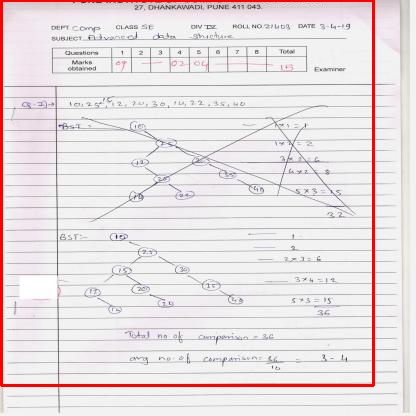 27, DHANKAWADI, PUNE 411 043.
DEPT. comp CLASS SE DIV IV ROLL NO. 21403 DATE 3-4-19
SUBJECT Advanced data structure
Questions 1 2 3 4 5 6 7 8 Total
Marks obtained 09 — 02 04 15
Examiner
10, 25, 15, 12, 20, 30, 14, 22, 35, 40
BST:-
10
25
1×1 = 1
1×2 = 2
3×2 = 6
4×2 = 8
5×3 = 15
32
BST:-
10
1
25
2
15 30
2×3 = 6
12 20 35
3×4 = 12
14 22 40
5×3 = 15
36
Total no. of comparison = 36
avg no. of comparison = 36/10 = 3-4